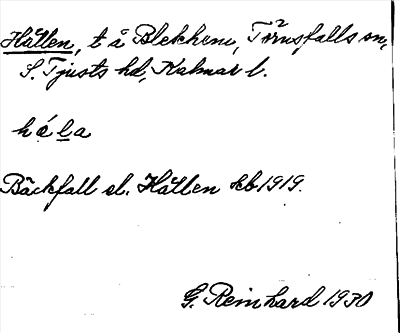 Hållen, t å Blekhem, Törnsfalls sn,
S. Tjusts hd, Kalmar l.
hǻla
Bäckfall el. Hållen kb 1919.
G. Reinhard 1930